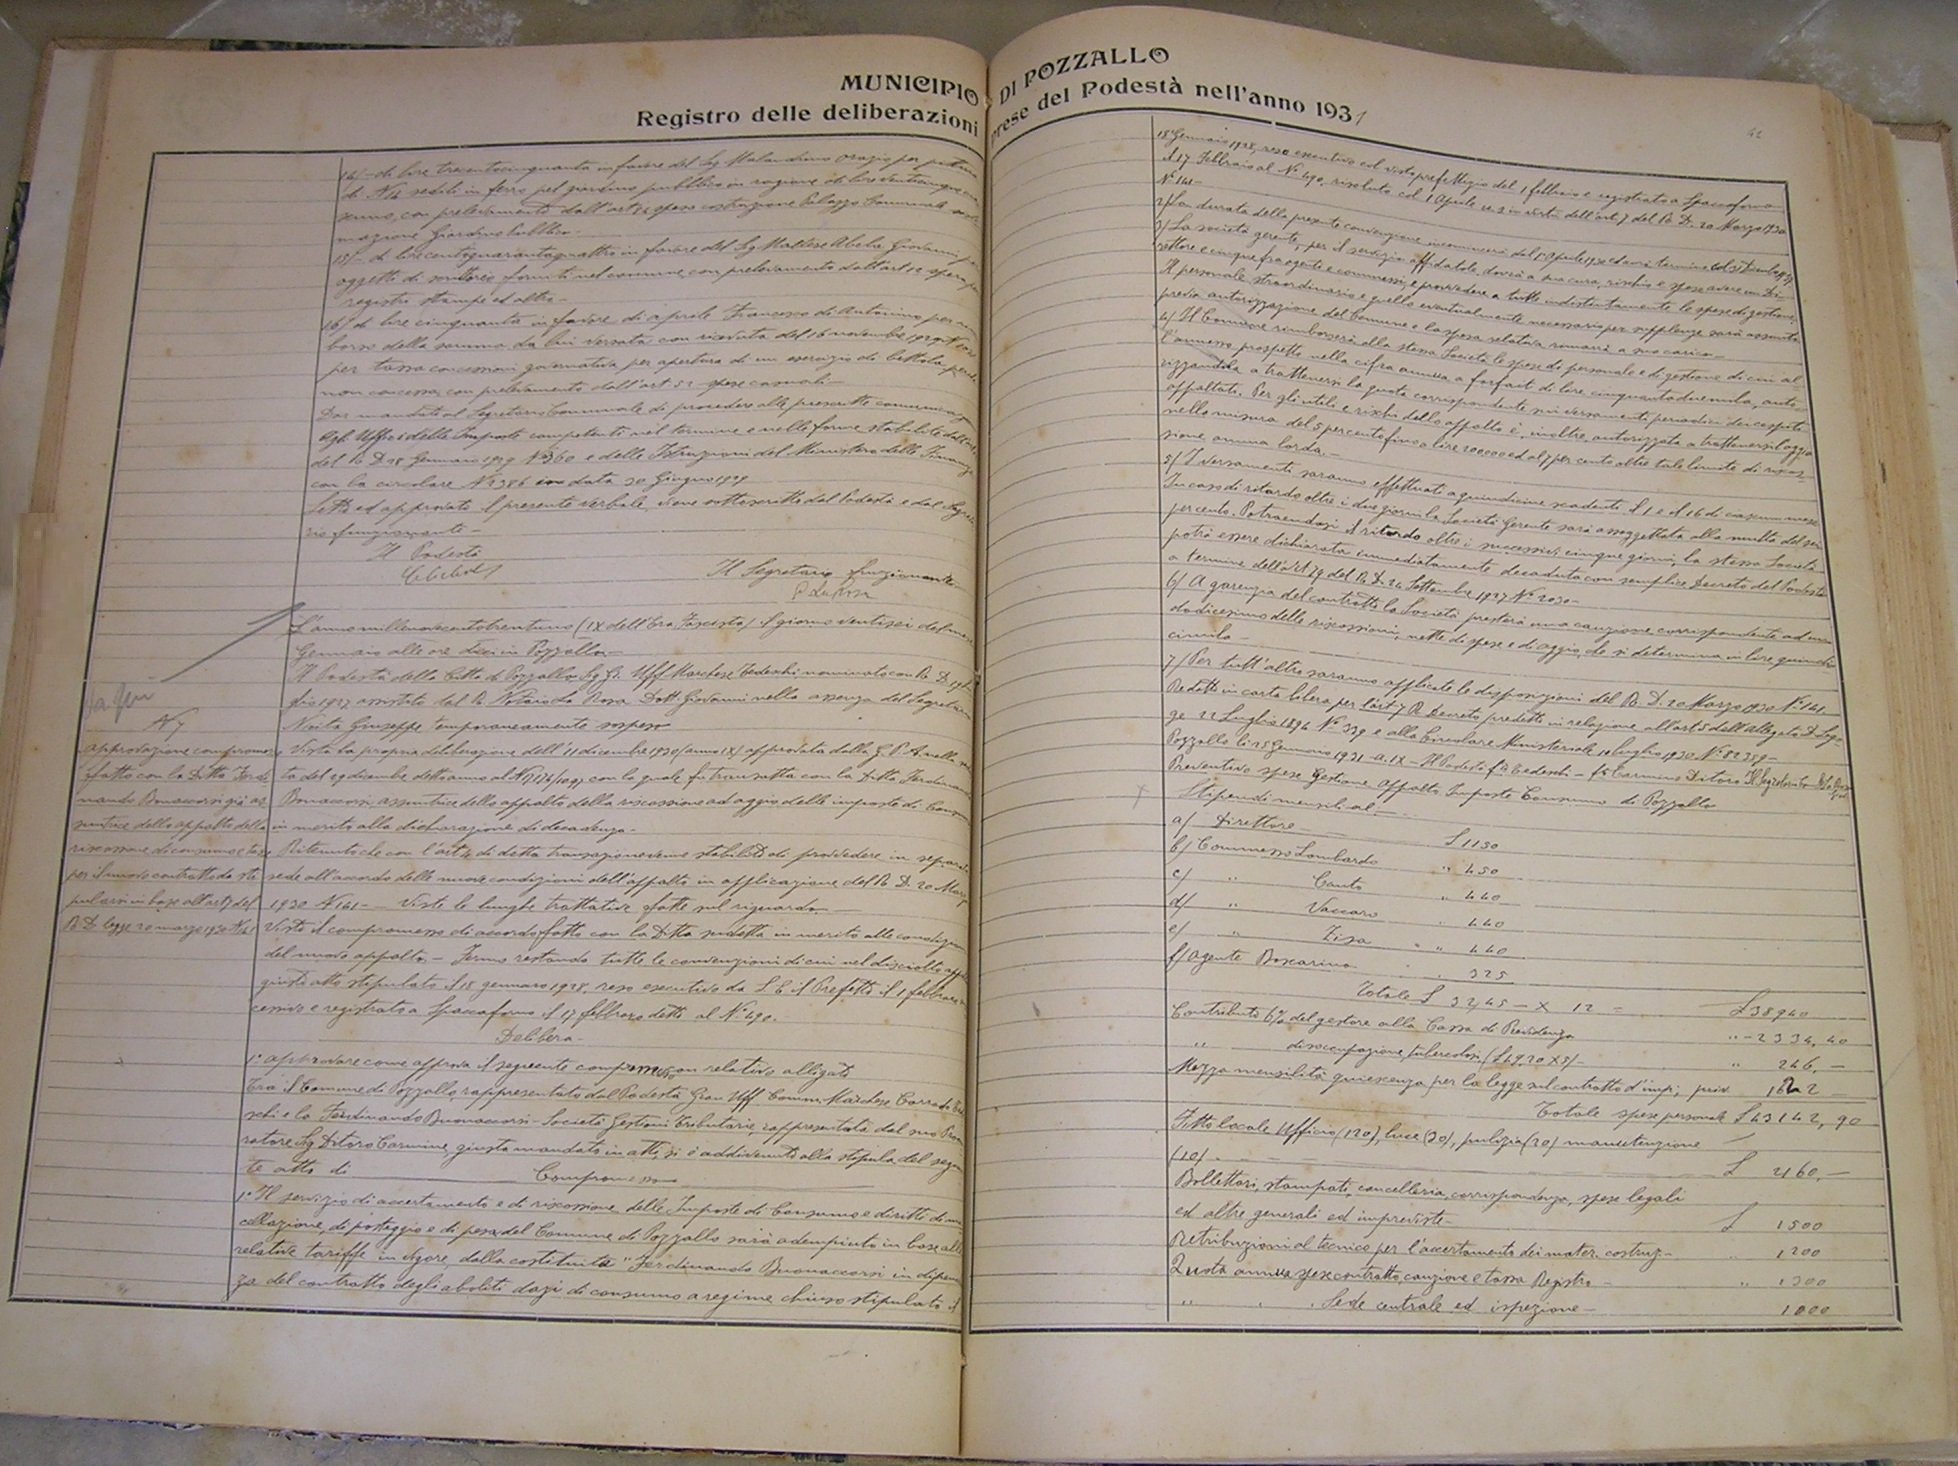 MUNICIPIO DI POZZALLO
Registro delle deliberazioni prese del Podestà nell'anno 1931
14/- di lire trecentocinquanta in favore del Sg Malandrino Orazio per
di N 14 sedili in ferro pel giardino pubblico in ragione di lire venticinque
con prelevamento dall'art spese costruzione Palazzo Comunale
Giardino Pubblico.-
15/- di lire centoquarantaquattro in favore del Sg Maltese Abela Giovanni
oggetti di forniti nel comune, con prelevamento dall'art 12 spese
registri stampe ed altro-
16/ di lire cinquanta in favore di Aprile Francesco di Antonino per
borso della somma da lui versata con ricevuta del 16 novembre
per tassa concessioni governativa per apertura di un esercizio di bettola
non concessa, con prelevamento dall'art 52 spese casuali-
Dar mandato al Segretario Comunale di procedere alle prescritte
Agli Uffici delle Imposte competenti nel termine e nelle forme stabilite
del R D 28 Gennaio 1929 N 360 e delle Istruzioni del Ministero delle Finanze
con la circolare N 2386 in data 30 Giugno 1929
Letto ed approvato il presente verbale, viene sottoscritto dal Podestà e dal Segreta
rio funzionante-
Il Podestà
Il Segretario funzionante
L'anno millenovecentotrentuno (IX dell'Era Fascista) il giorno ventisei del mese
Gennaio alle ore dieci in Pozzallo-
Il Podestà della Città di Pozzallo Sg Gr. Uff Marchese Tedeschi nominato con R. D.
1927 assistito dal R Notaio La Rosa Dott Giovanni nella assenza del Segretario
da qui
N 7
Giuseppe, temporaneamente sospeso
approvazione compromesso
fatto con la Ditta Ferdi
nando Bonaccorsi già as
suntrice dello appalto della
riscossione di consumo e tasse
per il nuovo contratto da sti
pularsi in base all'art 7 del
R. D. legge 20 marzo 1930 N 141
Vista la propria deliberazione dell'11 dicembre 1930 (anno IX) approvata dalla G. P. A. nella
ta del 29 dicembre detto anno al con la quale fu transatta con la Ditta Ferdinando
Bonaccorsi, assuntrice dello appalto della riscossione ad aggio delle imposte di Consumo
in merito alla dichiarazione di decadenza.
Ritenuto che con l'art 4 di detta transazione venne stabilito di provvedere in separata
sede all'accordo delle nuove condizioni dell'appalto in applicazione del R. D. 20 Marzo
1930 N 141- Viste le lunghe trattative fatte sul riguardo-
Visto il compromesso di accordo fatto con la Ditta sudetta in merito alle condizioni
del nuovo appalto- Fermo restando tutte le convenzioni di cui nel disciolto
giusto atto stipulato il 18 gennaio 1928, reso esecutivo da S. E. il Prefetto il 1 febbraio
e registrato a Spaccaforno il 17 febbraio detto al N. 490.
Delibera-
1° approvare come approva il seguente compromesso con relativo allegato
Tra il Comune di Pozzallo rappresentato dal Podestà Gran Uff Comm. Marchese Corrado Tede
schi e la Ferdinando Buonaccorsi- Società Gestioni Tributarie, rappresentata dal suo Procu
ratore Sg Ditoro Carmine, giusto mandato in atti, si è addivenuti alla stipula del seguen
te atto di Compromesso
1° Il servizio di accertamento e di riscossione delle Imposte di Consumo e diritti di
di posteggio e di peso del Comune di Pozzallo sarà adempiuto in base alle
relative tariffe in vigore, dalla costituita "Ferdinando Buonaccorsi in dipenden
za del contratto degli aboliti dazi di consumo a regime chiuso stipulato il
18 Gennaio 1928, reso esecutivo col visto prefettizio del 1 febbraio e registrato a Spaccaforno
il 17 Febbraio al N. 490, risoluto col 1 Aprile u.s. in virtù dell'art 7 del R. D. 20 Marzo 1930
N. 141-
2/ La durata della presente convenzione incomincerà dal 1 Aprile 1930 ed avrà termine col 31 Dicembre
3/ La società gerente, per il servizio affidatole, dovrà a sua cura, rischio e spese avere un Di-
rettore e cinque fra agente e commessi, e provvedere a tutte indistintamente le spese di gestione,
Il personale straordinario e quello eventualmente necessario per supplenze sarà assunto
previa autorizzazione del Comune e la spesa relativa rimarrà a suo carico-
4/ Il Comune rimborserà alla stessa Società le spese di personale e di gestione di cui al
l'annesso prospetto nella cifra annua a forfait di lire cinquantaduemila, auto-
rizzandola a trattenersi la quota corrispondente sui versamenti periodici dei cespiti
appaltati. Per gli utili e rischi dello appalto è, inoltre, autorizzata a trattenersi l'aggio
nella misura del 5 per cento fino a lire 200000 ed al 7 per cento oltre tale limite di riscos-
sione annua lorda.-
5/ I versamenti saranno effettuati a quindicine scadenti il 1 e il 16 di ciascun mese
In caso di ritardo oltre i due giorni la Società Gerente sarà assoggettata alla multa del sei
per cento. Potraendosi il ritardo oltre i successivi cinque giorni, la stessa Società
potrà essere dichiarata immediatamente decaduta con semplice Decreto del Podestà
a termine dell'art 29 del R. D. 24 Settembre 1927 N. 2030-
6/ A garenzia del contratto la Società presterà una cauzione corrispondente ad un
dodicesimo delle riscossioni, nette di spese e di aggio, che si determina in lire quindi
cimila-
7/ Per tutt'altro saranno applicate le disposizioni del R. D. 20 Marzo 1930 N. 141-
Redatto in carta libera per l'art 7 R Decreto predetto in relazione all'art 5 dell'Allegato D Leg-
ge 22 Luglio 1894 N. 339 e alla Circolare Ministeriale 10 luglio 1930 N. 82359-
Pozzallo li 25 Gennaio 1931- a. IX- Il Podestà fto Tedeschi- fto Carmine Ditoro Il Segretario
Preventivo spese Gestione appalto Imposte Consumo di Pozzallo
Stipendi mensili al-
a/ Direttore- £ 1150
b/ Commesso Lombardo " 450
c/ " Cauto " 440
d/ " Vaccaro 440
e/ " Zisa " " 440
f/ Agente Boscarino " 325
Totale £ 3245 - X 12 = £ 38940
Contributo 6% del gestore alla Cassa di Previdenza " - 2334, 40
" disoccupazione, tubercolosi (£ 49.20 X 5)- " 246, -
Mezza mensilità quiescenza per la legge sul contratto d'imp. priv. 1622
Totale spese personale £ 43142, 90
Fitto locale Ufficio (120), luce (30), pulizia (20) manutenzione
(10). £ 2160, -
Bollettari, stampati, cancelleria, corrispondenza, spese legali
ed altre generali ed impreviste- £ 1500
Retribuzioni al tecnico per l'accertamento dei mater. costruz.- " 1200
Quota annua spese contratto, cauzione e tassa Registro- " 1300
" " " Sede centrale ed ispezione- 1000